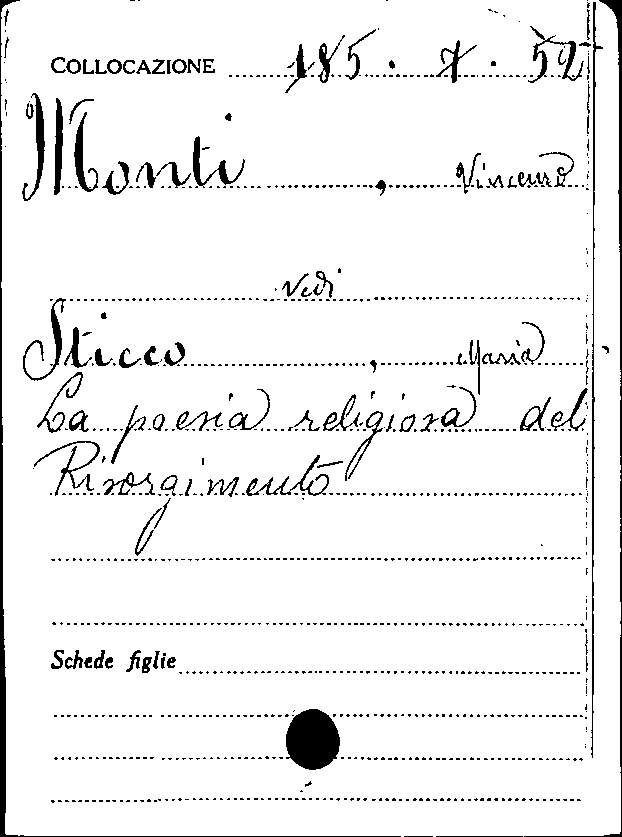 COLLOCAZIONE 185. 7. 52
Monti, Vincenzo
vedi
Sticco, Maria
La poesia religiosa del
Risorgimento
Schede figlie